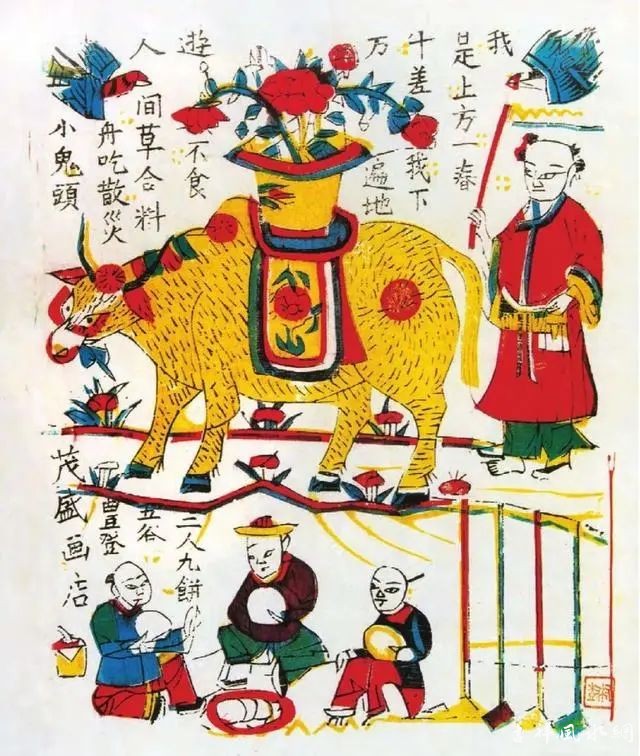 我
是上方一春
牛差我下
万遍地
遊不食
人間草合料
舟吃散災
小鬼頭
二人九餅
五谷
豊登
茂盛画店